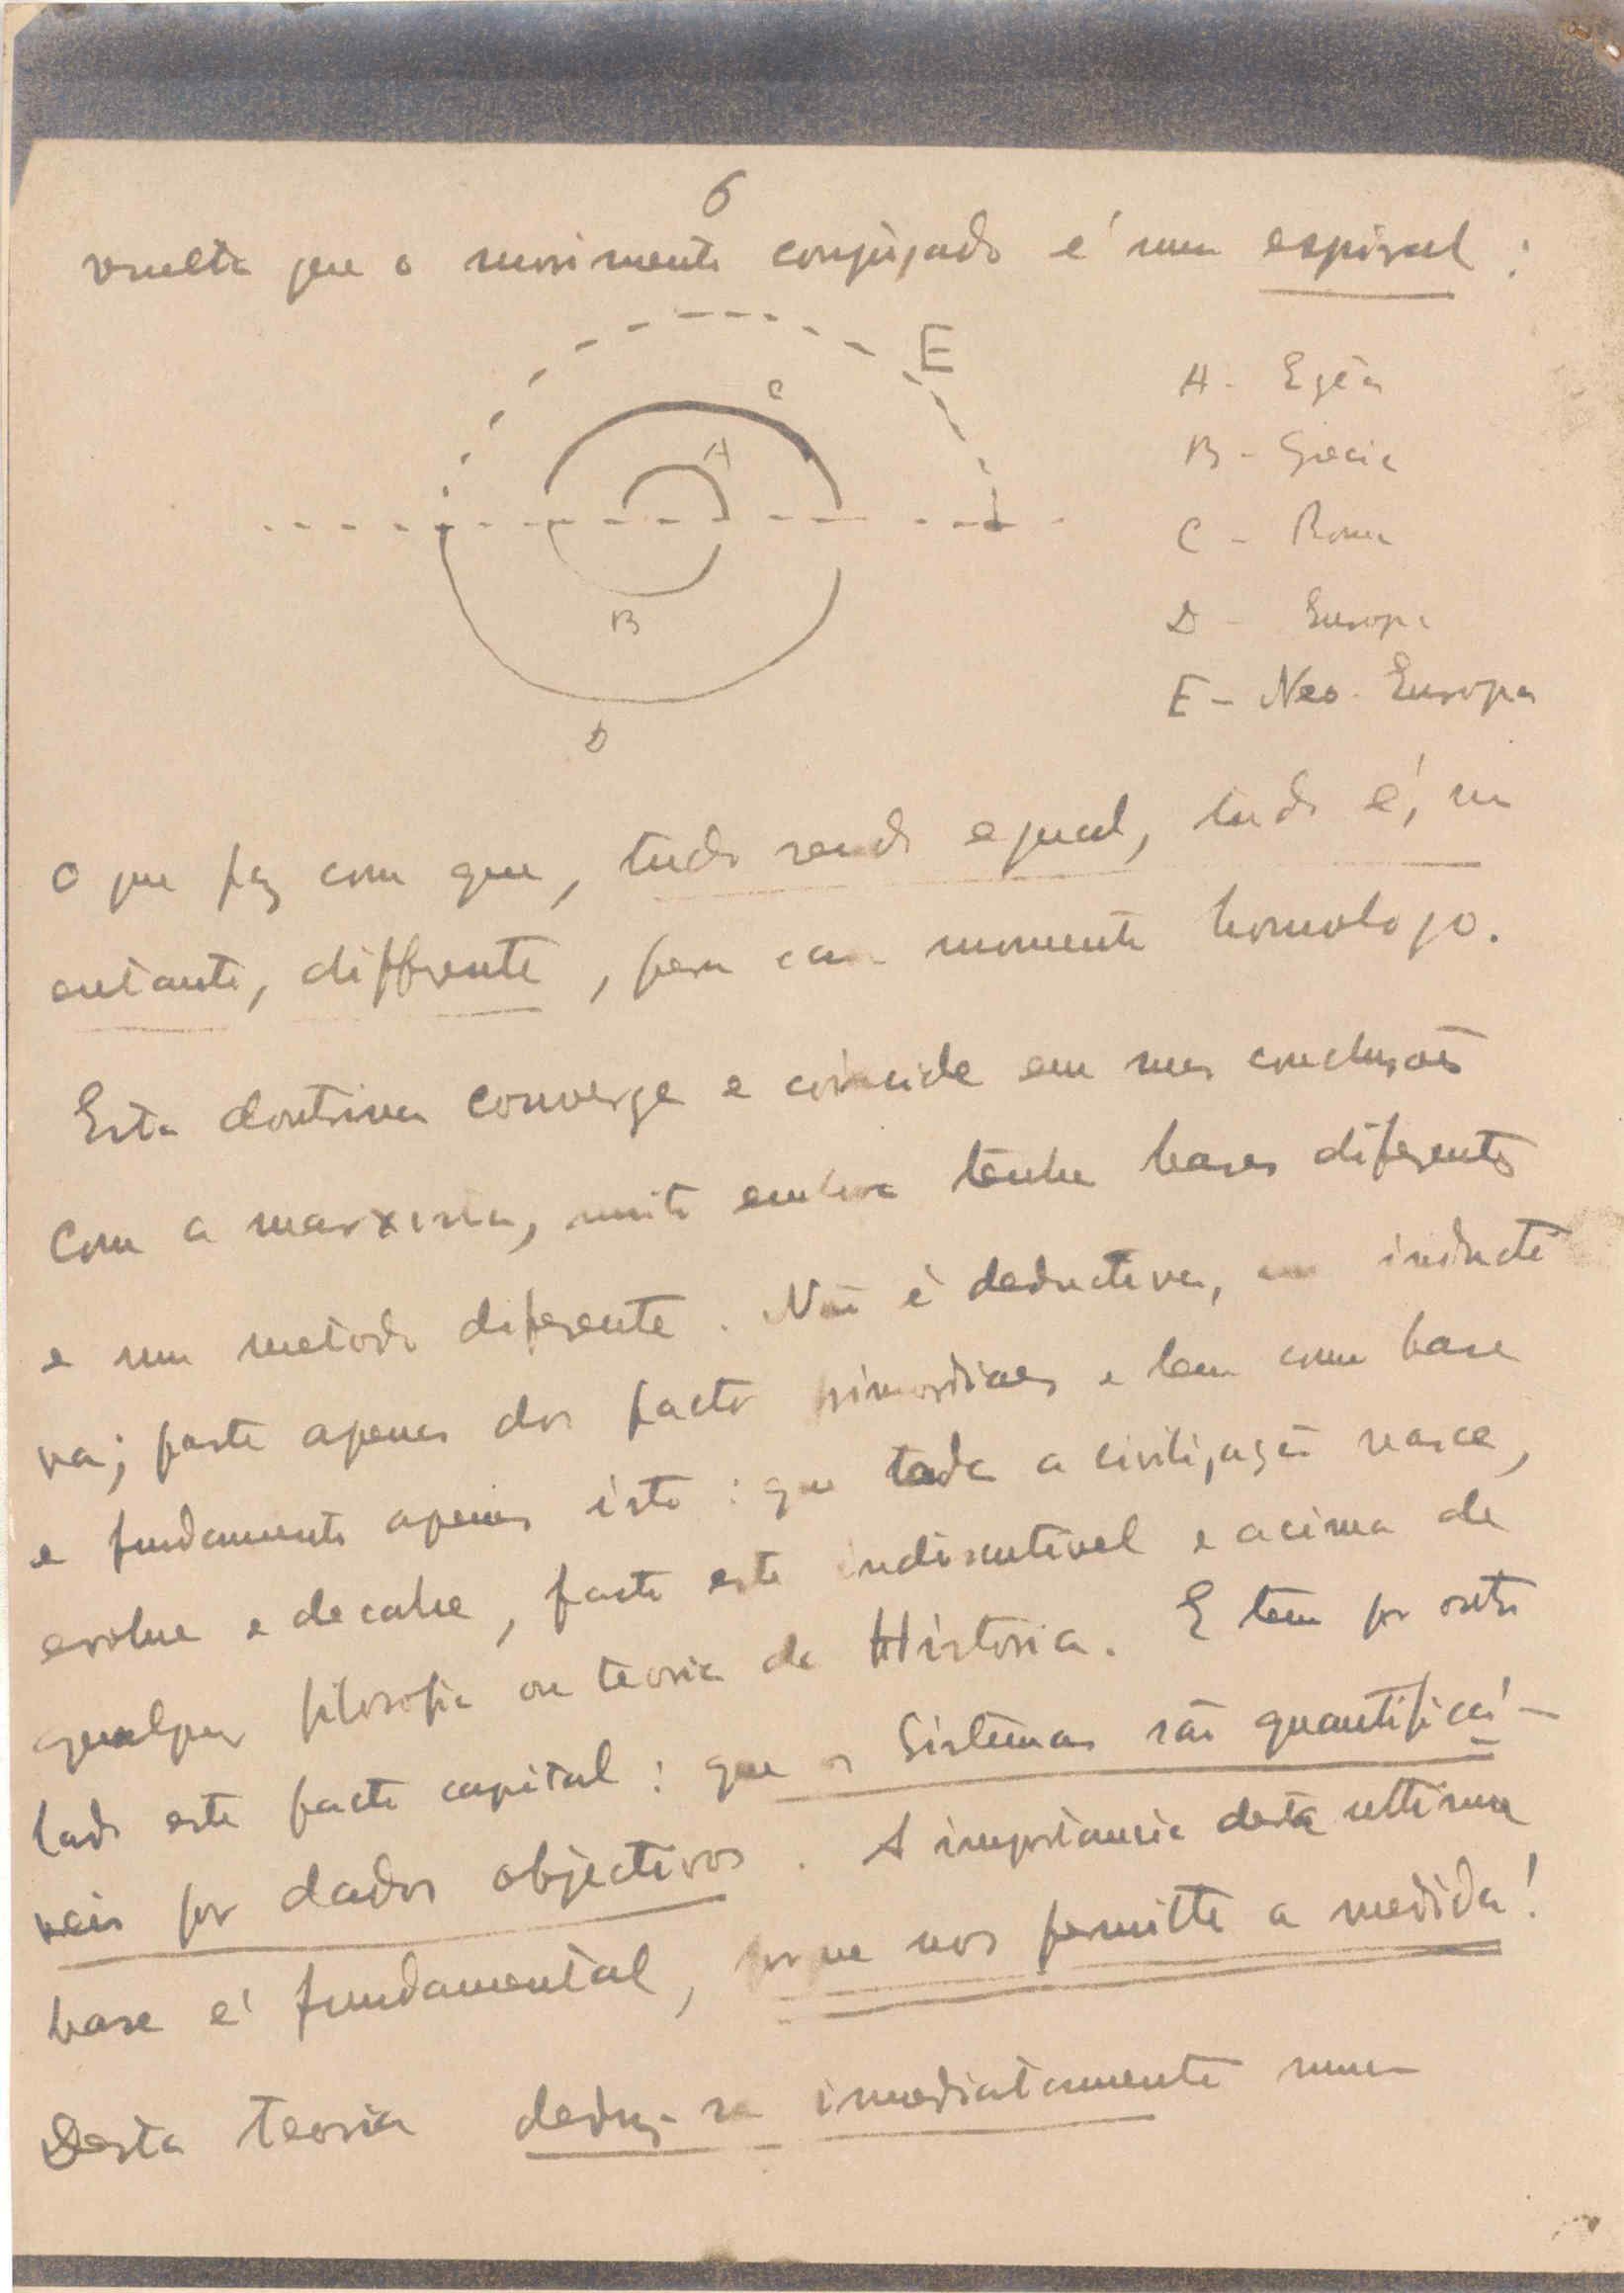 6
que o movimento conjugado é uma espiral :
E
C
A
B
D
A - Egêa
B - Grecia
C - Roma
D - Europa
E - Neo-Europa
O que faz com que, tudo sendo egual, tudo é, no
entanto, diffrente, para cada momento homologo.
Esta doutrina converge e coincide em suas conclusões
com a marxista, muito embora tenha bases diferentes
e um metodo diferente. Não é deductiva, inducti
va; parte apenas dos factos primordiaes e tem como base
e fundamento apenas isto : que toda a civilização nasce,
evolue e decahe, facto este indiscutivel e acima de
qualquer filosofia ou teoria da Historia. E tem por outro
lado este facto capital : que os Sistemas são quantificá-
veis por dados objectivos. A importancia desta ultima
base é fundamental, porque nos permitte a medida!
Desta teoria deduz-se imediatamente uma